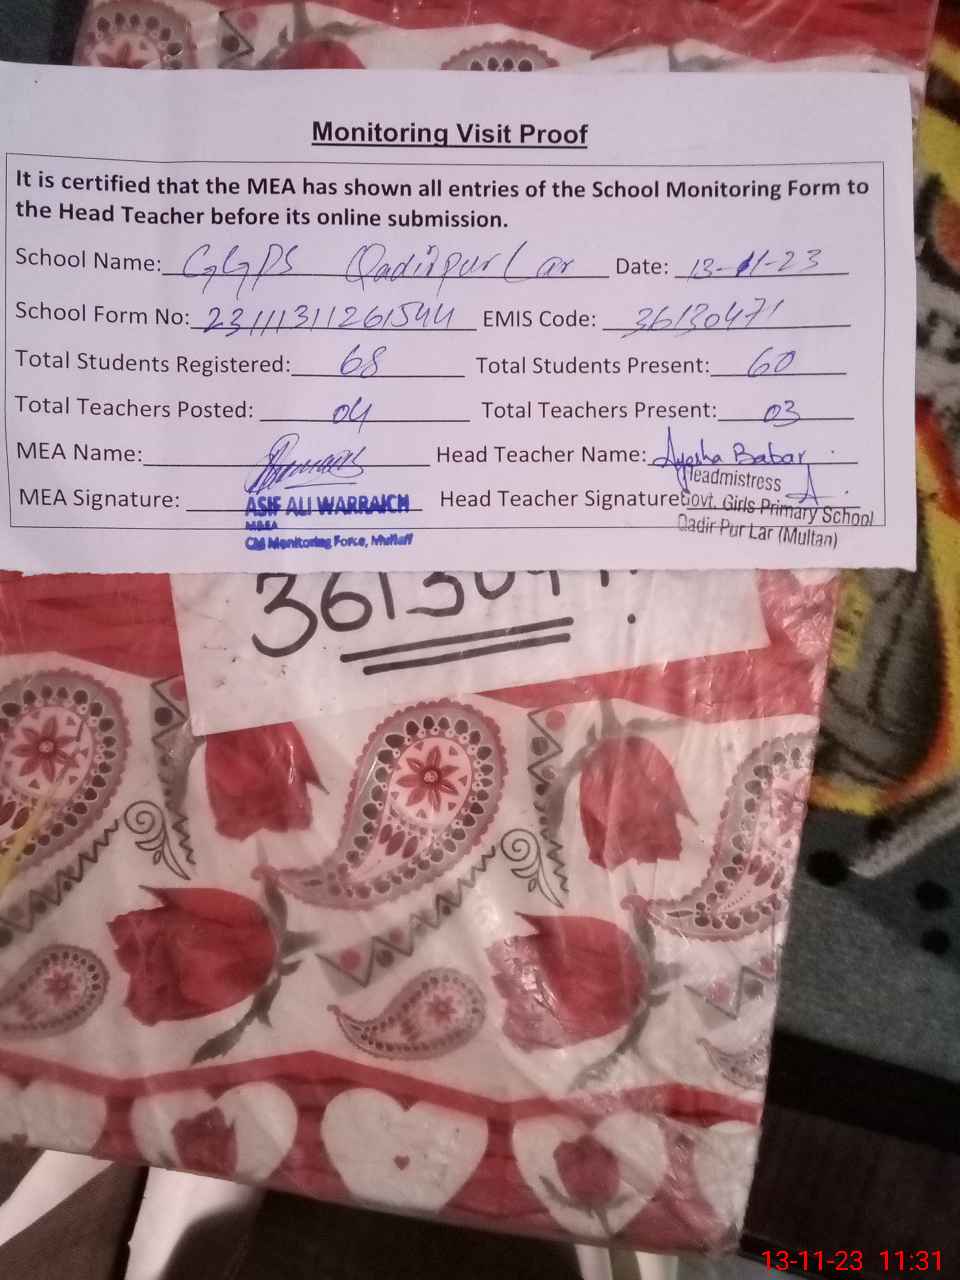 Monitoring Visit Proof
It is certified that the MEA has shown all entries of the School Monitoring Form to
the Head Teacher before its online submission.
School Name: GGPS Qadirpur Lar Date: 13-11-23
School Form No: 23111311261544 EMIS Code: 36130471
Total Students Registered: 68 Total Students Present: 60
Total Teachers Posted: 04 Total Teachers Present: 03
MEA Name: Head Teacher Name: Ayesha Babar
Headmistress
MEA Signature: ASIF ALI WARRAICH Head Teacher Signature Govt. Girls Primary School
MEA
CM Monitoring Force, Multan Qadir Pur Lar (Multan)
13-11-23 11:31